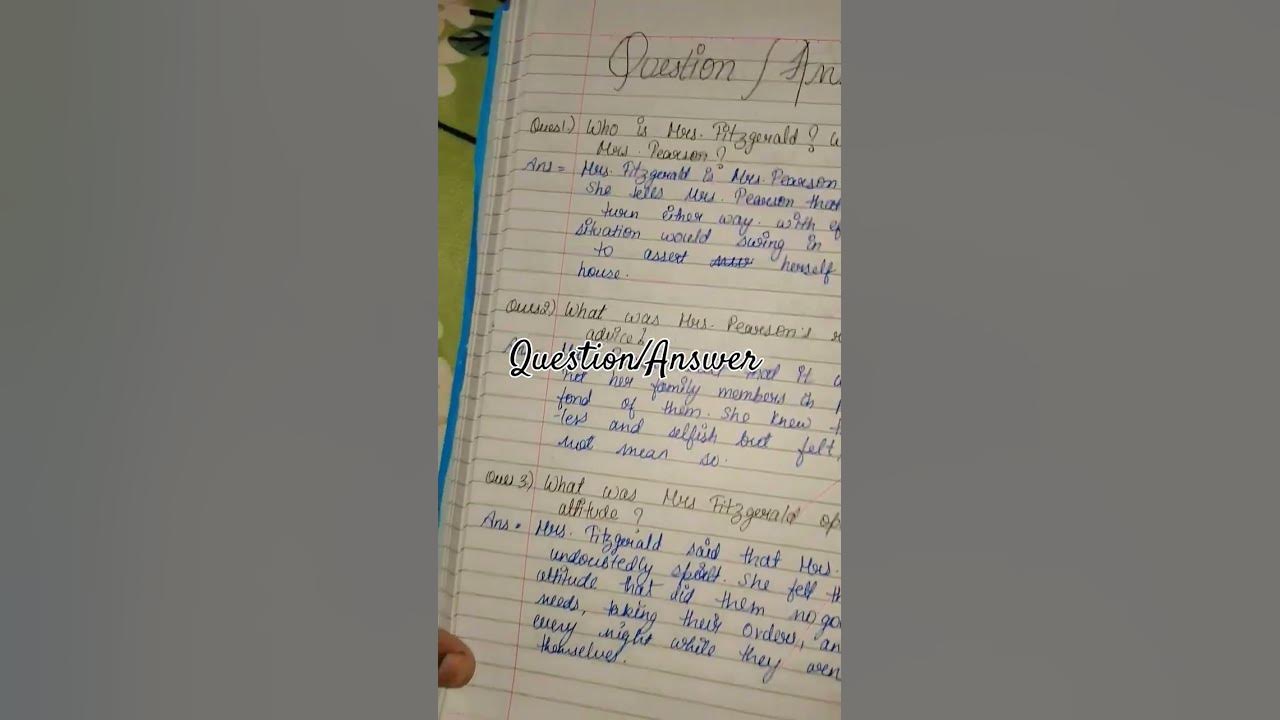 Question / An
Ques1) Who is Mrs. Fitzgerald? W
Mrs. Pearson?
Ans = Mrs. Fitzgerald is Mrs. Pearson
She tells Mrs. Pearson that
turn either way. with ef
situation would swing in
to assert herself
house.
Ques2) What was Mrs. Pearson's r
advice?
Question/Answer
that it
her family members
fond of them. She knew
less and selfish but felt,
not mean so.
Ques 3) What was Mrs Fitzgerald op
attitude?
Ans = Mrs. Fitzgerald said that Mrs.
undoubtedly spoilt. She felt th
attitude that did them no goo
needs, taking their orders, an
every night while they
themselves.